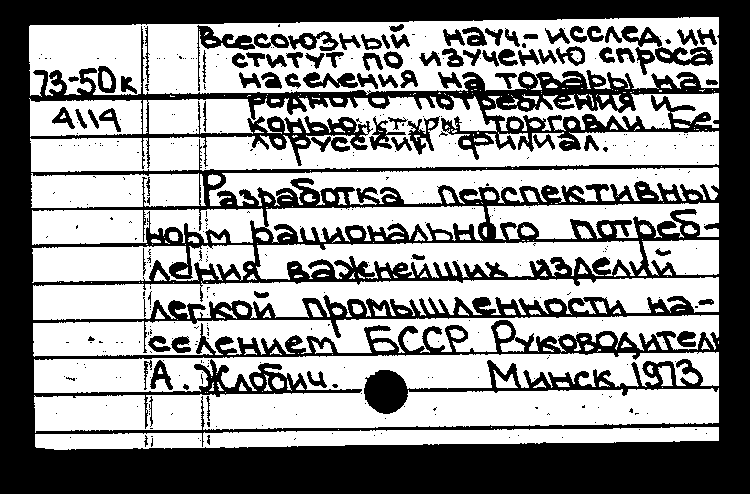 Всесоюзный науч.-исслед. ин-
ститут по изучению спроса
73-50к населения на товары на-
4114 родного потребления и
конъюнктуры торговли. Бе-
лорусский филиал.
Разработка перспективных
норм рационального потреб-
ления важнейших изделий
легкой промышленности на-
селением БССР. Руководитель
А. Жлобич. Минск, 1973